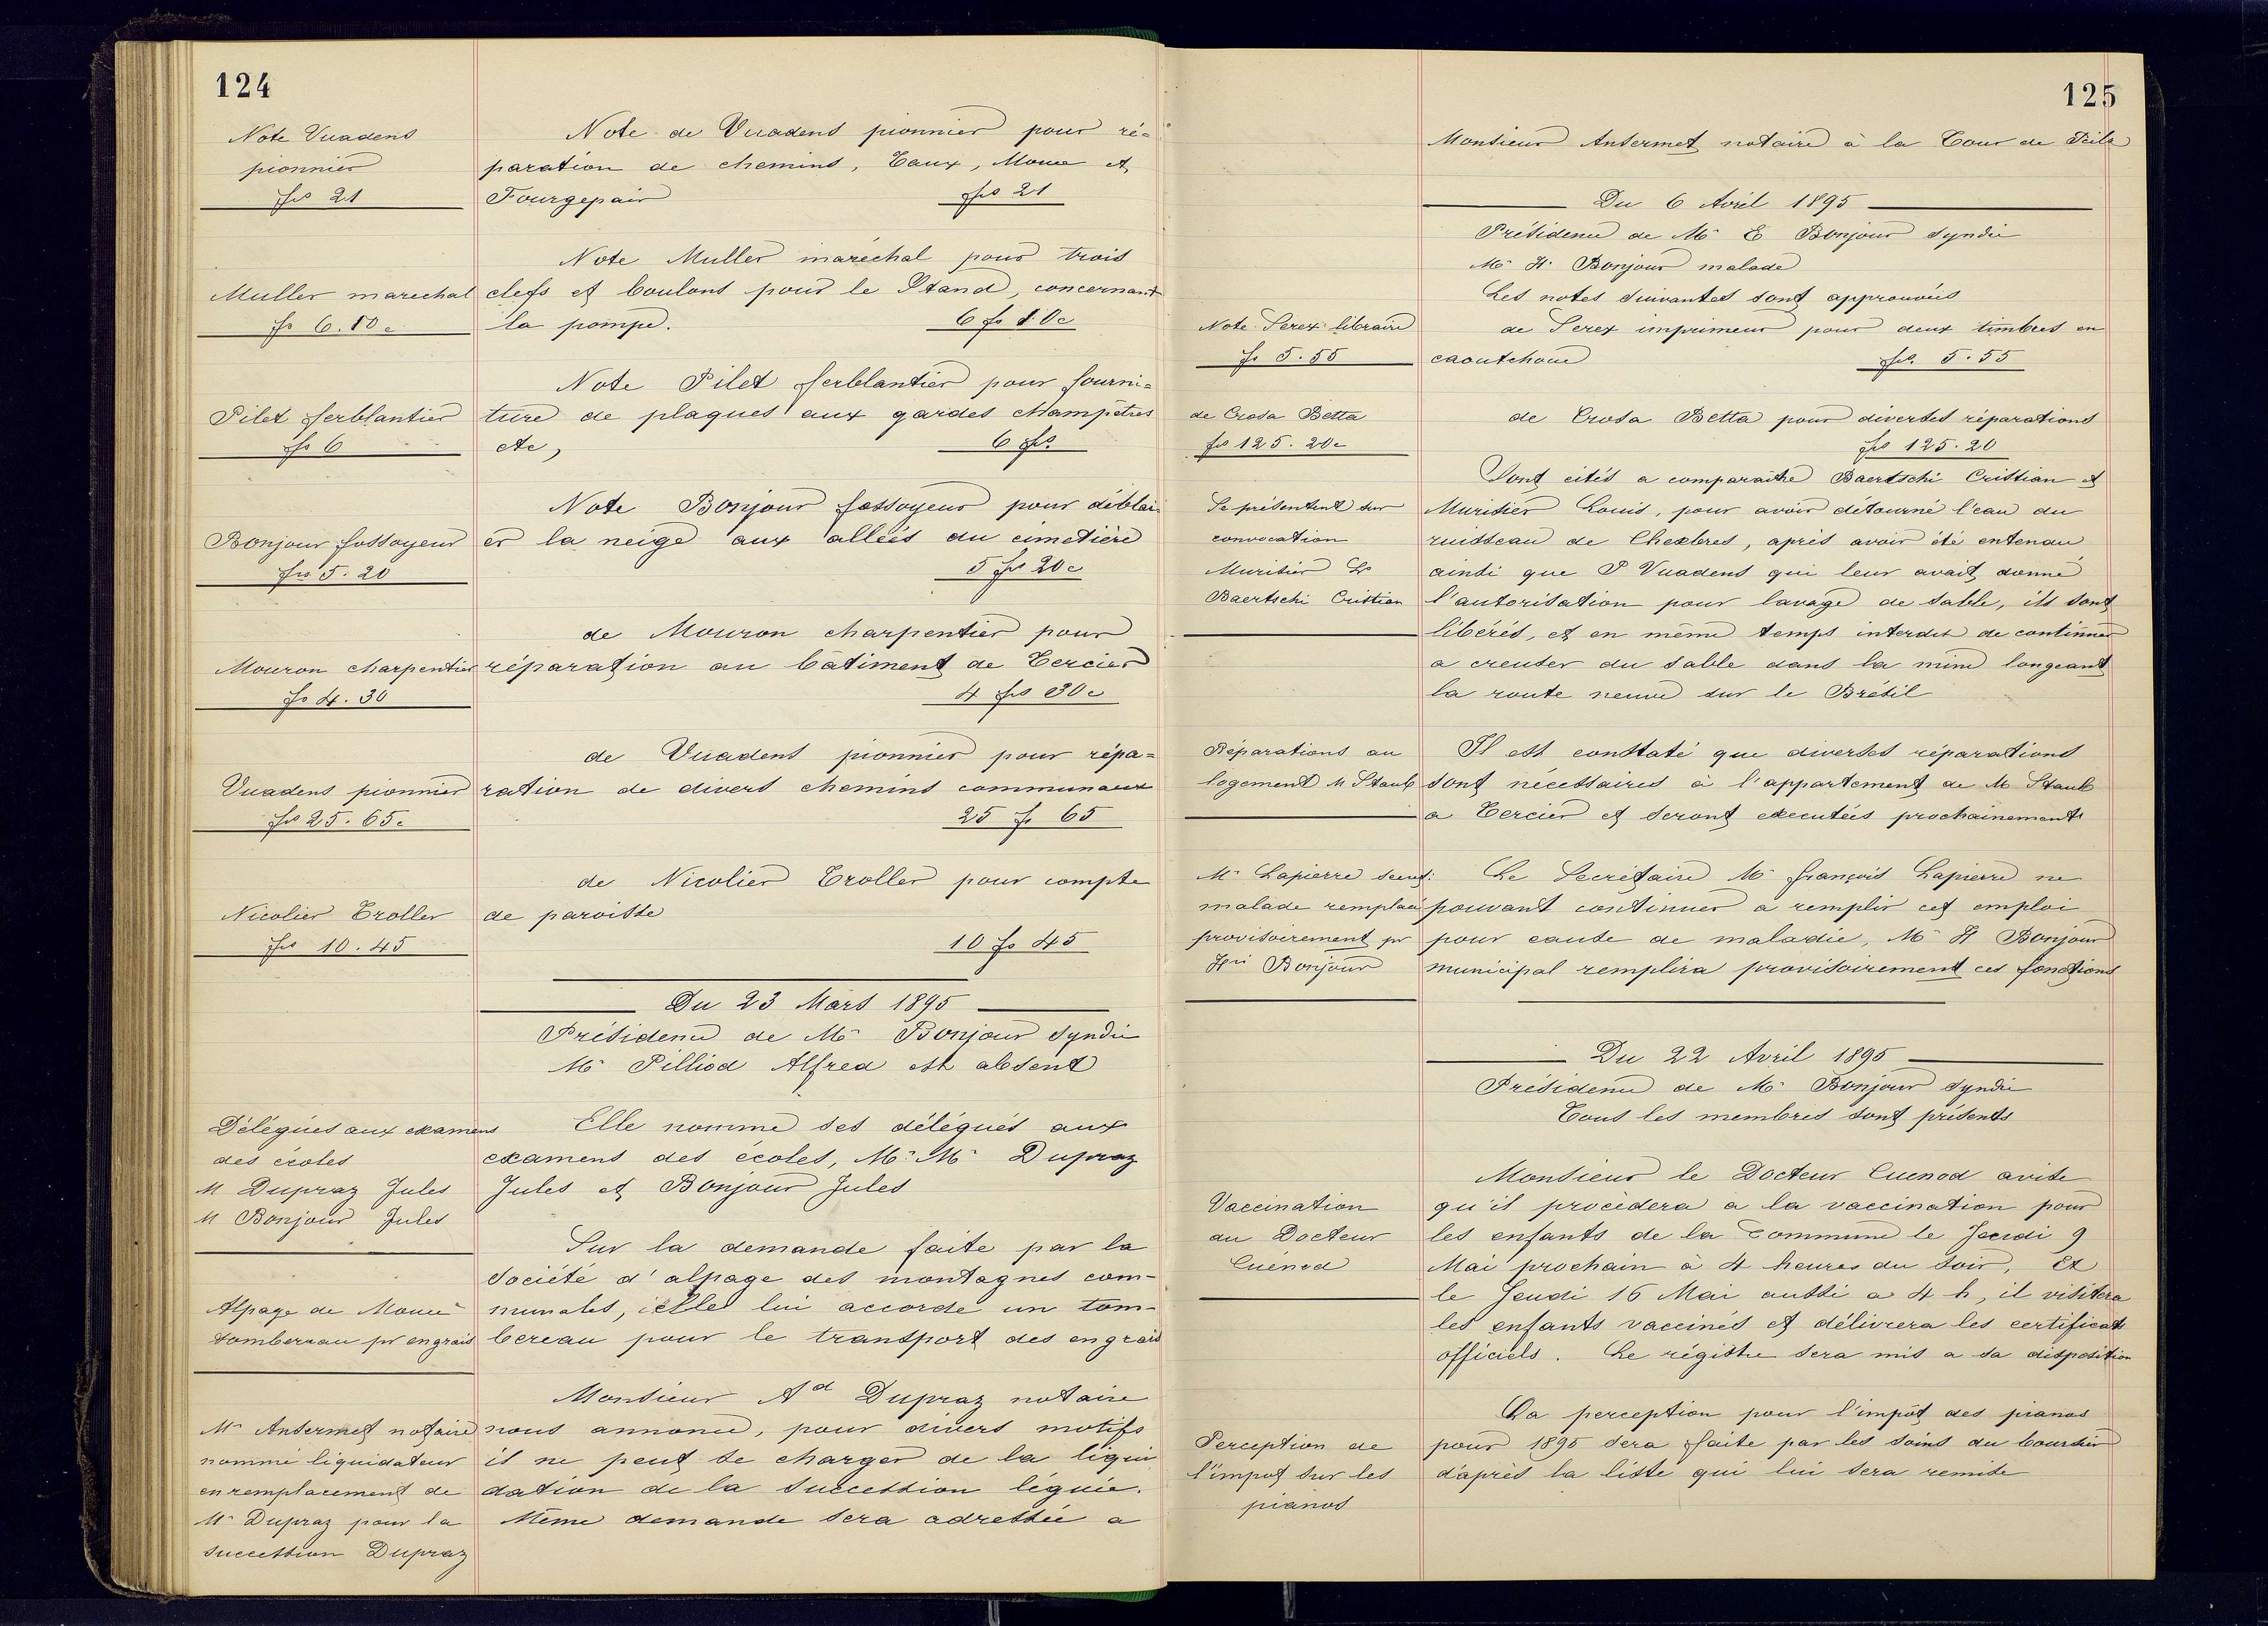 124
Note Vuadens
pionnier
frs 21
Note de Vuadens pionnier pour ré=
paration de chemins, Eaux, Moue et
Fourgepair
frs 21
Muller marechal
fr 6.10 c
Note Muller maréchal pour trois
clefs et boulons pour le Stand, concernant
la pompe.
6 fr 10c
Pilet ferblantier
fr 6
Note Pilet ferblantier pour fourni=
ture de plaques aux gardes champêtres
etc,
6 frs
Bonjour fossoyeur
frs 5.20
Note Bonjour fossoyeur pour déblai
er la neige aux allées du cimetière
5 frs 20c
Mouron charpentier
fr 4.30
de Mouron charpentier pour
réparation au bâtiment de Cercier
4 frs 30c
Vuadens pionnier
frs 25.65c
de Vuadens pionnier pour répa=
ration de divers chemins communaux
25 fr 65
Nicolier Troller
frs 10.45
de Nicolier Troller pour compte
de paroisse
10 fr 45
Du 23 Mars 1895
Présidence de Mr Bonjour Syndic
Mr Pilliod Alfred est absent
Délégués aux examens
des écoles
M Dupraz Jules
M Bonjour Jules
Elle nomme ses délégués aux
examens des écoles, Mr Mr Dupraz
Jules et Bonjour Jules
Alpage de Moue
tombereau pr engrais
Sur la demande faite par la
Société d'alpage des montagnes com-
munales, icelle lui accorde un tom-
bereau pour le transport des engrais
Mr Ansermet notaire
nommé liquidateur
en remplacement de
Mr Dupraz pour la
succession Dupraz
Monsieur Ad Dupraz notaire
nous annonce, pour divers motifs
il ne peut se charger de la liqui
dation de la succession léguée.
Même demande sera adressée a
125
Monsieur Ansermet notaire à la Tour de Peilz
Du 6 Avril 1895
Présidence de Mr E Bonjour Syndic
Mr H. Bonjour malade
Les notes suivantes sont approuvées
Note Serex libraire
fr 5.55
de Serex imprimeur pour deux timbres en
caoutchouc
frs. 5.55
de Crosa Betta
frs 125.20c
de Crosa Betta pour diverses réparations
frs 125.20
Se présentent sur
convocation
Murisier Ls
Baertschi Cristian
Sont cités a comparaître Baertschi Cristian et
Murisier Louis, pour avoir détourné l'eau du
ruisseau de Chexbres, après avoir été entendu
ainsi que P Vuadens qui leur avait donné
l'autorisation pour lavage de sable, ils sont
libérés, et en même temps interdit de continuer
a creuser du sable dans la mine longeant
la route neuve sur le Brésil
Réparations au
logement M Staub
Il est constaté que diverses réparations
sont nécessaires à l'appartement de M Staub
a Cercier et seront executées prochainement
Mr Lapierre secret:
malade remplacé
provisoirement pr
Hri Bonjour
Le Secrétaire Mr françois Lapierre ne
pouvant continuer a remplir cet emploi
pour cause de maladie, Mr H Bonjour
municipal remplira provisoirement ces fonctions
Du 22 Avril 1895
Présidence de Mr Bonjour Syndic
Tous les membres sont présents
Vaccination
du Docteur
Cuénod
Monsieur le Docteur Cuenod avise
qu'il procèdera a la vaccination pour
les enfants de la Commune le Jeudi 9
Mai prochain à 4 heures du soir, Et
le Jeudi 16 Mai aussi a 4 h, il visitera
les enfants vaccinés et délivrera les certificats
officiels. Le régistre sera mis a sa disposition
Perception de
l'impot sur les
pianos
La perception pour l'impôt des pianos
pour 1895 sera faite par les soins du boursier
d'après la liste qui lui sera remise